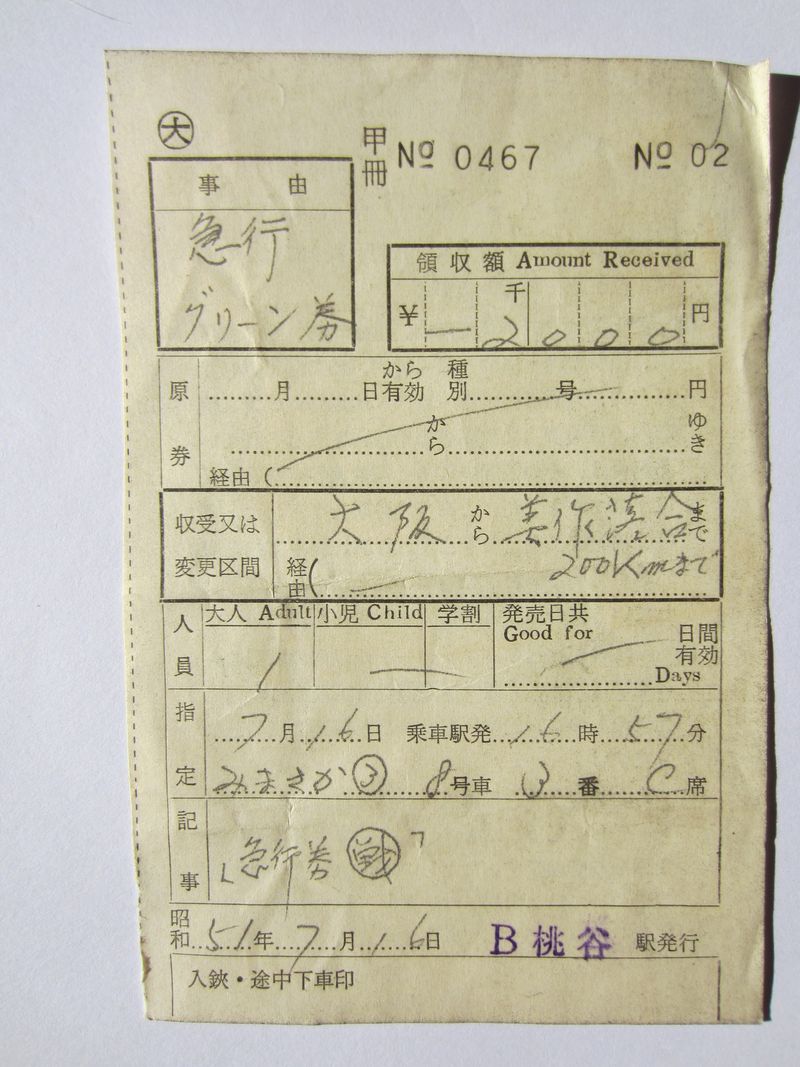 大
甲冊 No 0467 No 02
事由
急行
グリーン券
領収額 Amount Received
千
¥ ー 2000 円
原券
月 日から有効 種別 号 円
から ゆき
経由 (
収受又は変更区間
大阪 から 美作落合 まで
200Kmまで
経由 (
人員
大人 Adult 小児 Child 学割 発売日共
Good for 日間有効
1 ー Days
指定
7月16日 乗車駅発 16時57分
みまさか③ 8号車 3番 C席
記事
「急行券 戦」
昭和51年7月16日 B桃谷 駅発行
入鋏・途中下車印